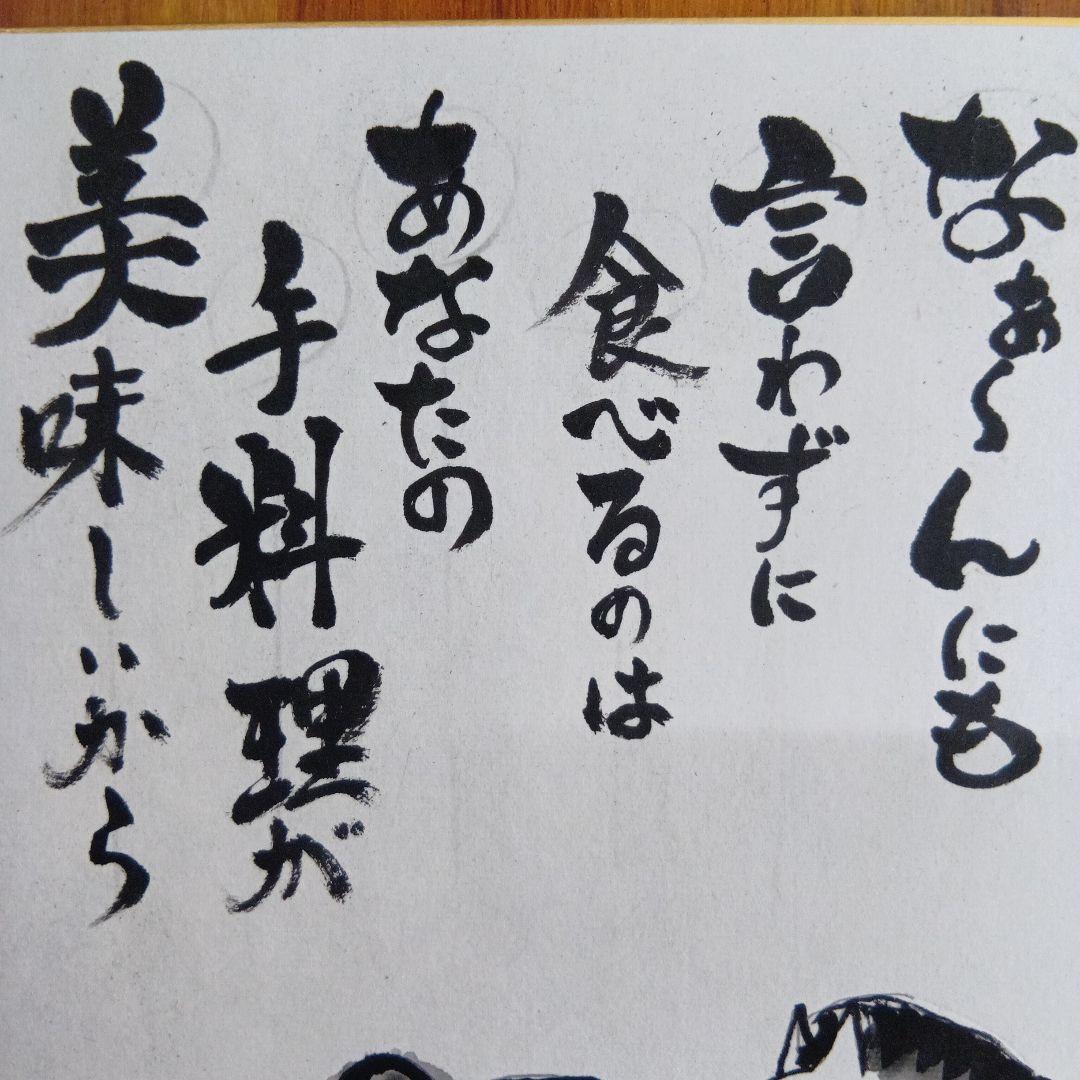 なぁ〜んにも
言わずに
食べるのは
あなたの
手料理が
美味しいから